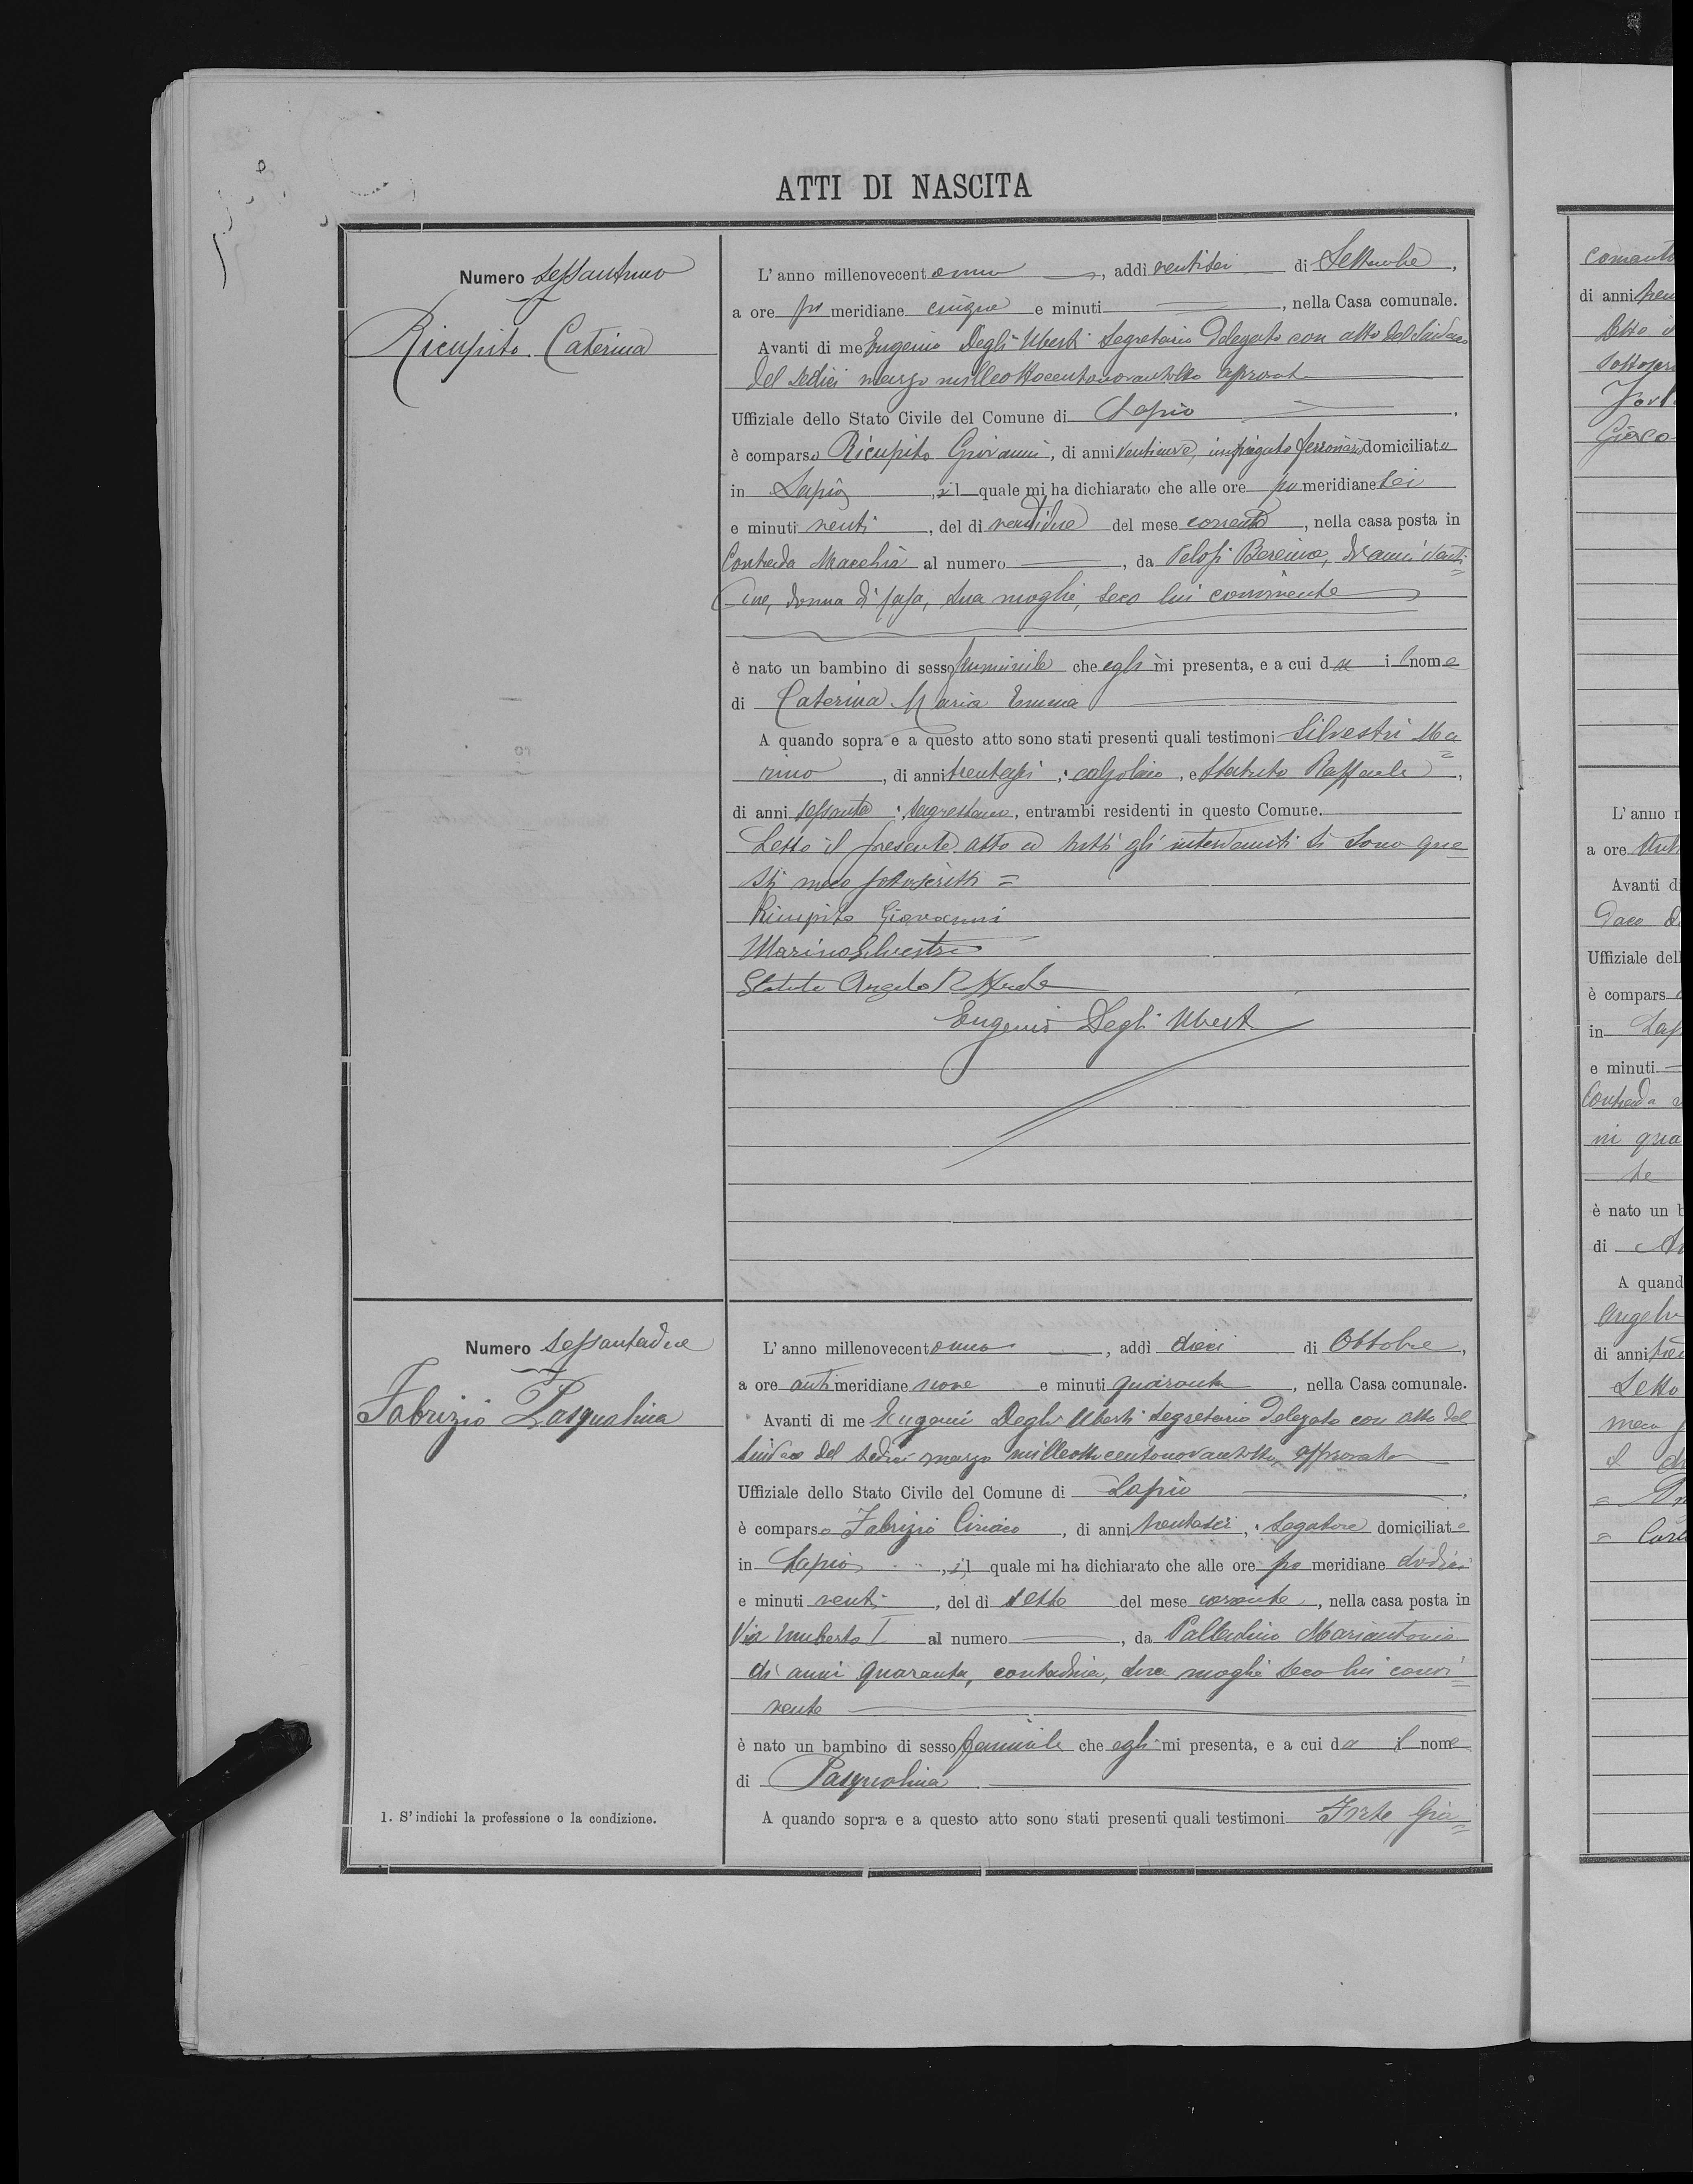 ATTI DI NASCITA
Numero sessantuno
Ricupito Caterina
L' anno millenovecentouno, addì ventisei di Settembre,
a ore po meridiane cinque e minuti, nella Casa comunale.
Avanti di me Eugenio Degli Uberti Segretario Delegato con atto del Sindaco
del sedici marzo milleottocentonovantotto
Uffiziale dello Stato Civile del Comune di Lapio.
è comparso Ricupito Giovanni, di anni ventinove, domiciliato
in Lapio, il quale mi ha dichiarato che alle ore po meridiane sei
e minuti venti, del dì ventidue del mese corrente, nella casa posta in
Contrada Macchia al numero, da Pelosi
donna di casa, sua moglie, seco lui convivente
è nato un bambino di sesso femminile che egli mi presenta, e a cui dà il nome
di Caterina Maria Emma
A quando sopra e a questo atto sono stati presenti quali testimoni Silvestri Ma=
rino, di anni trentasei, calzolaio, e Statuto Raffaele,
di anni sessanta, sagrestano, entrambi residenti in questo Comune.
Letto il presente atto a tutti gli intervenuti si sono que=
sti meco sottoscritti =
Ricupito Giovanni
Marino Silvestri
Statuto Angelo Raffaele
Eugenio Degli Uberti
Numero sessantadue
Fabrizio Pasqualina
L' anno millenovecentouno, addì dieci di Ottobre,
a ore anti meridiane nove e minuti quaranta, nella Casa comunale.
Avanti di me Eugenio Degli Uberti Segretario Delegato con atto del
Sindaco del sedici marzo milleottocentonovantotto, approvato
Uffiziale dello Stato Civile del Comune di Lapio,
è comparso Fabrizio Ciriaco, di anni trentasei, segatore domiciliato
in Lapio, il quale mi ha dichiarato che alle ore po meridiane dodici
e minuti venti, del dì sette del mese corrente, nella casa posta in
Via Umberto I al numero, da Palladino Mariantonia
di anni quaranta, contadina, sua moglie seco lui convi=
vente
è nato un bambino di sesso femminile che egli mi presenta, e a cui dà il nome
di Pasqualina
1. S' indichi la professione o la condizione.
A quando sopra e a questo atto sono stati presenti quali testimoni
di anni
L' anno
a ore
Avanti d
Uffiziale dell
è compars
in
e minuti
Contrada
è nato un b
di
A quand
di anni
Letto
meco